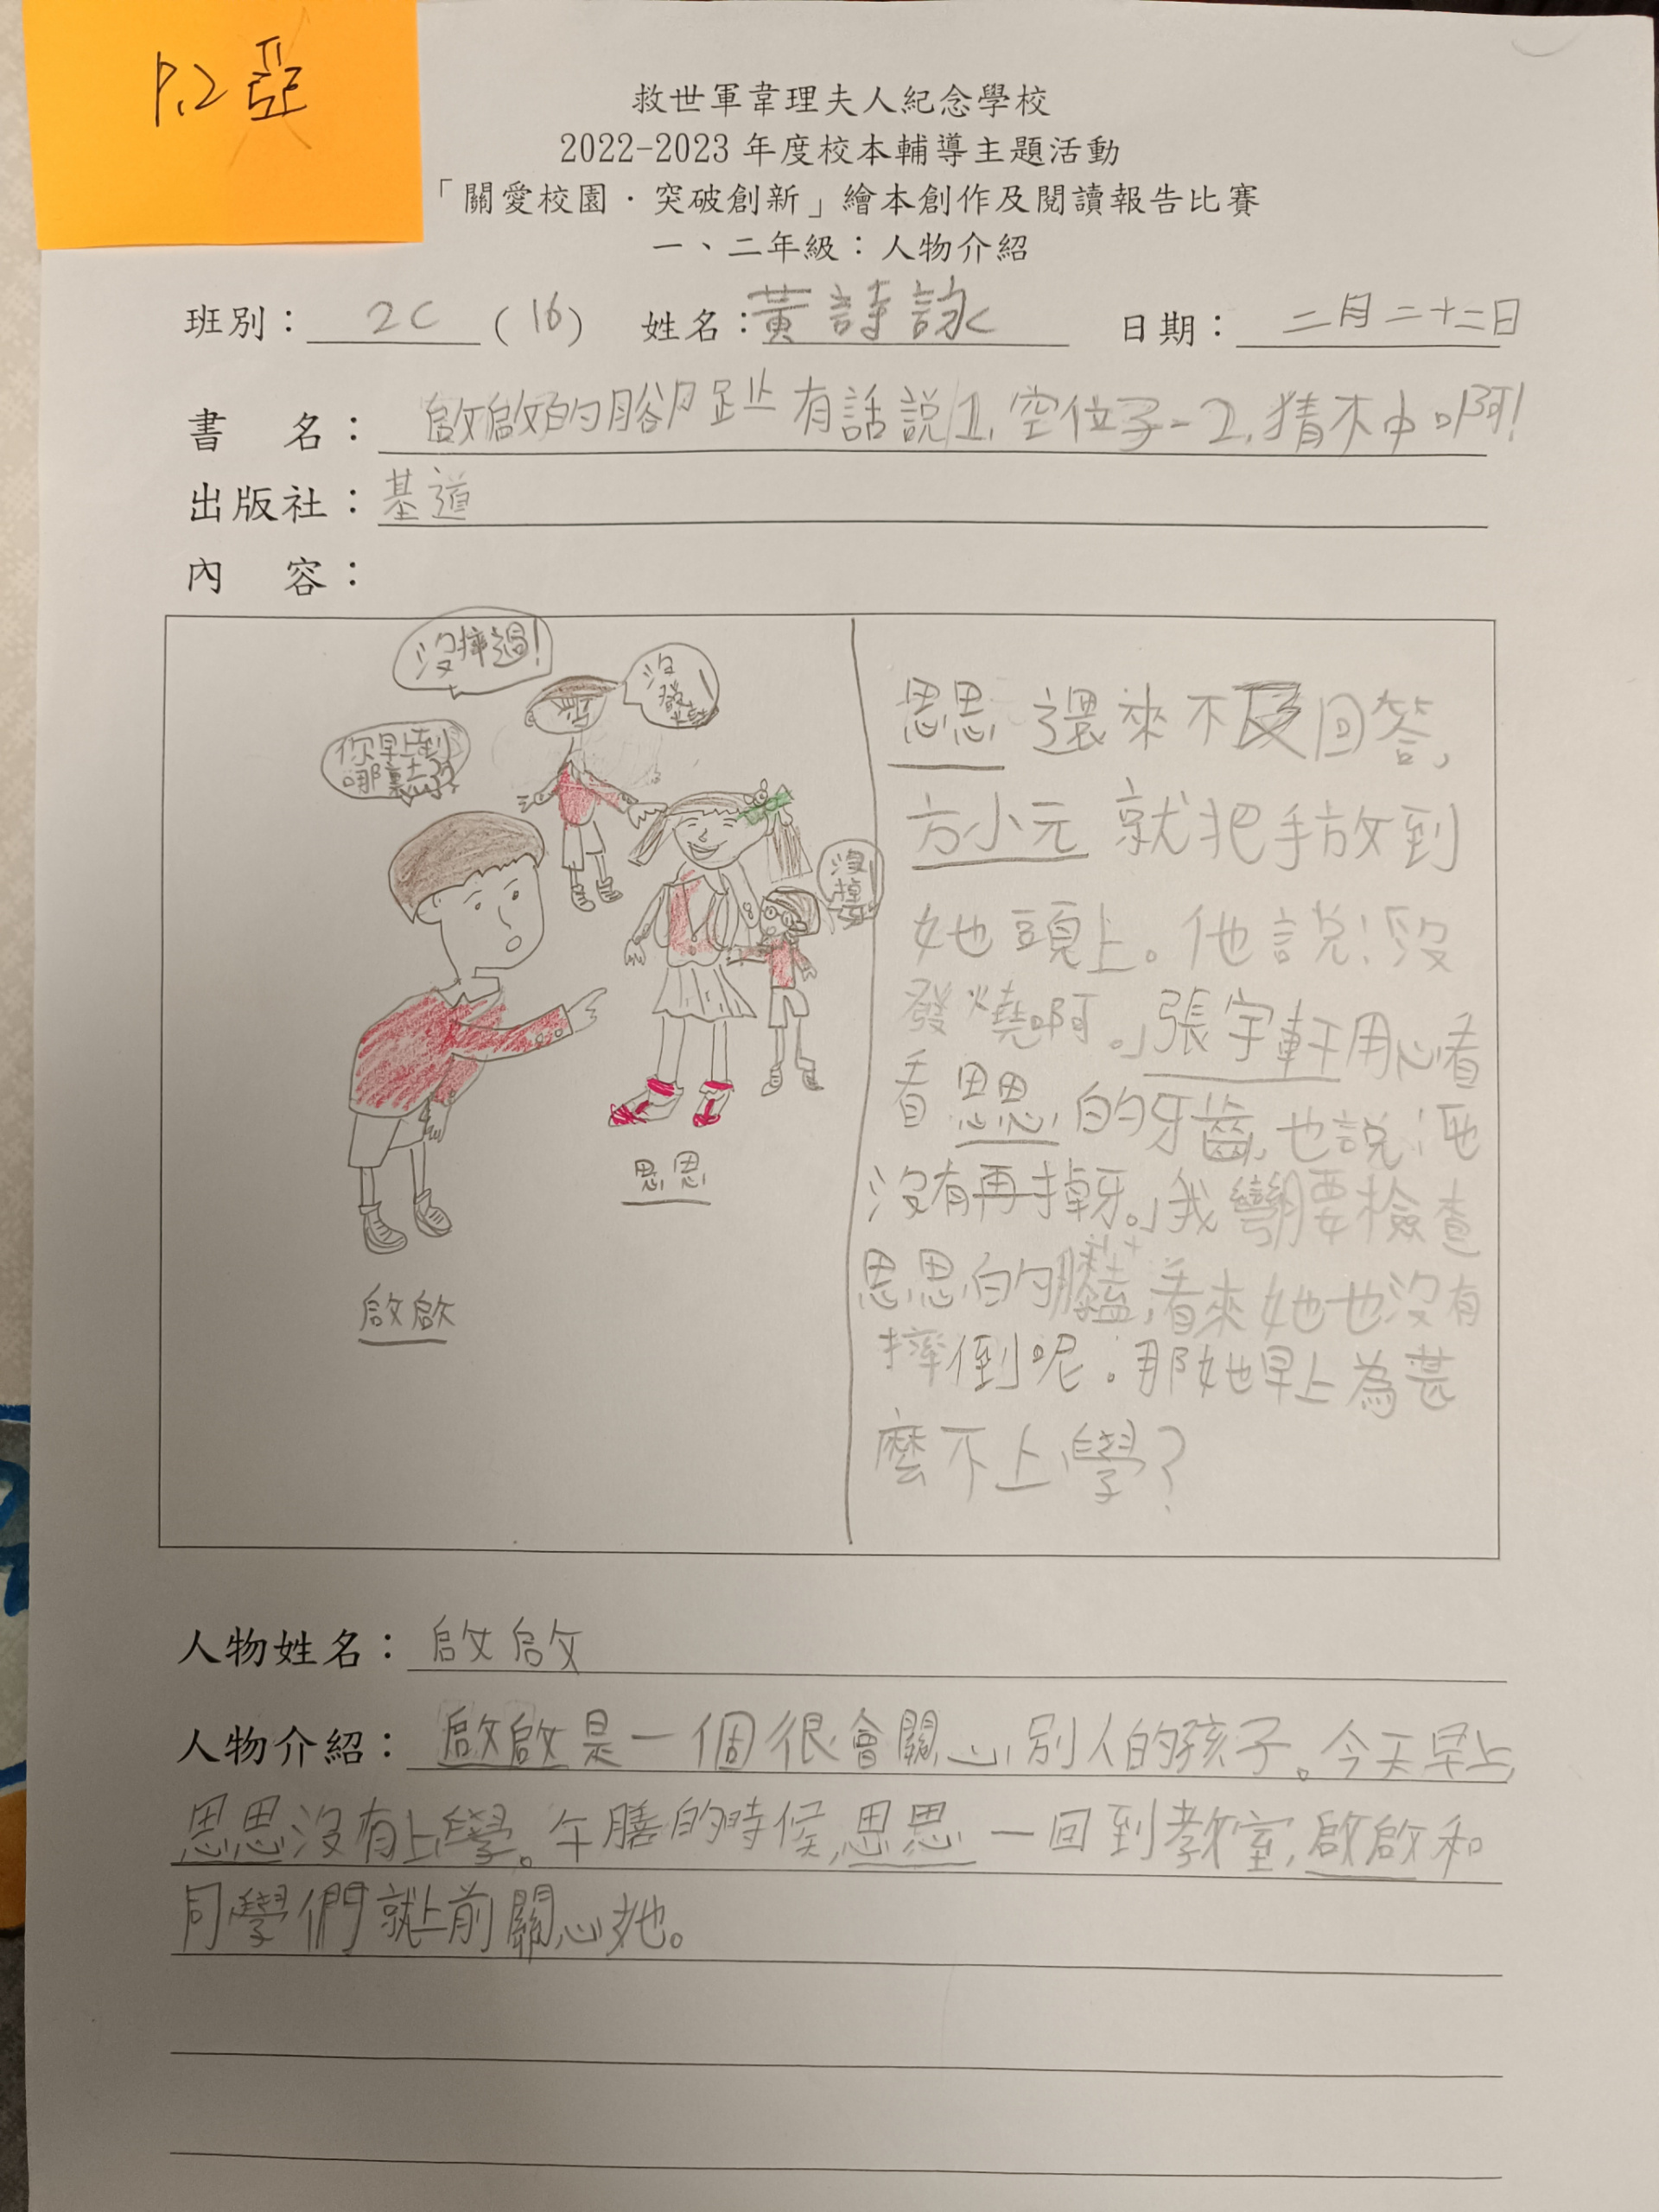 P.2 亞
救世軍韋理夫人紀念學校
2022-2023 年度校本輔導主題活動
「關愛校園．突破創新」繪本創作及閱讀報告比賽
一、二年級：人物介紹
班別： 2C (16) 姓名：黃詩詠 日期： 二月二十二日
書 名： 啟啟的腳趾有話說1,空位子-2,猜不中啊!
出版社：基道
內 容：
沒摔過!
沒發燒!
你早上到
哪裏去了?
沒掉牙
思思
啟啟
思思還來不及回答,
方小元就把手放到
她頭上。他說:沒
發燒啊。」張宇軒用心看
看思思的牙齒,也說:
沒有再掉牙。」我彎腰檢查
思思的膝蓋,看來她也沒有
摔倒呢。那她早上為甚
麼不上學?
人物姓名： 啟啟
人物介紹： 啟啟是一個很會關心別人的孩子。今天早上,
思思沒有上學。午膳的時候,思思一回到教室,啟啟和
同學們就上前關心她。